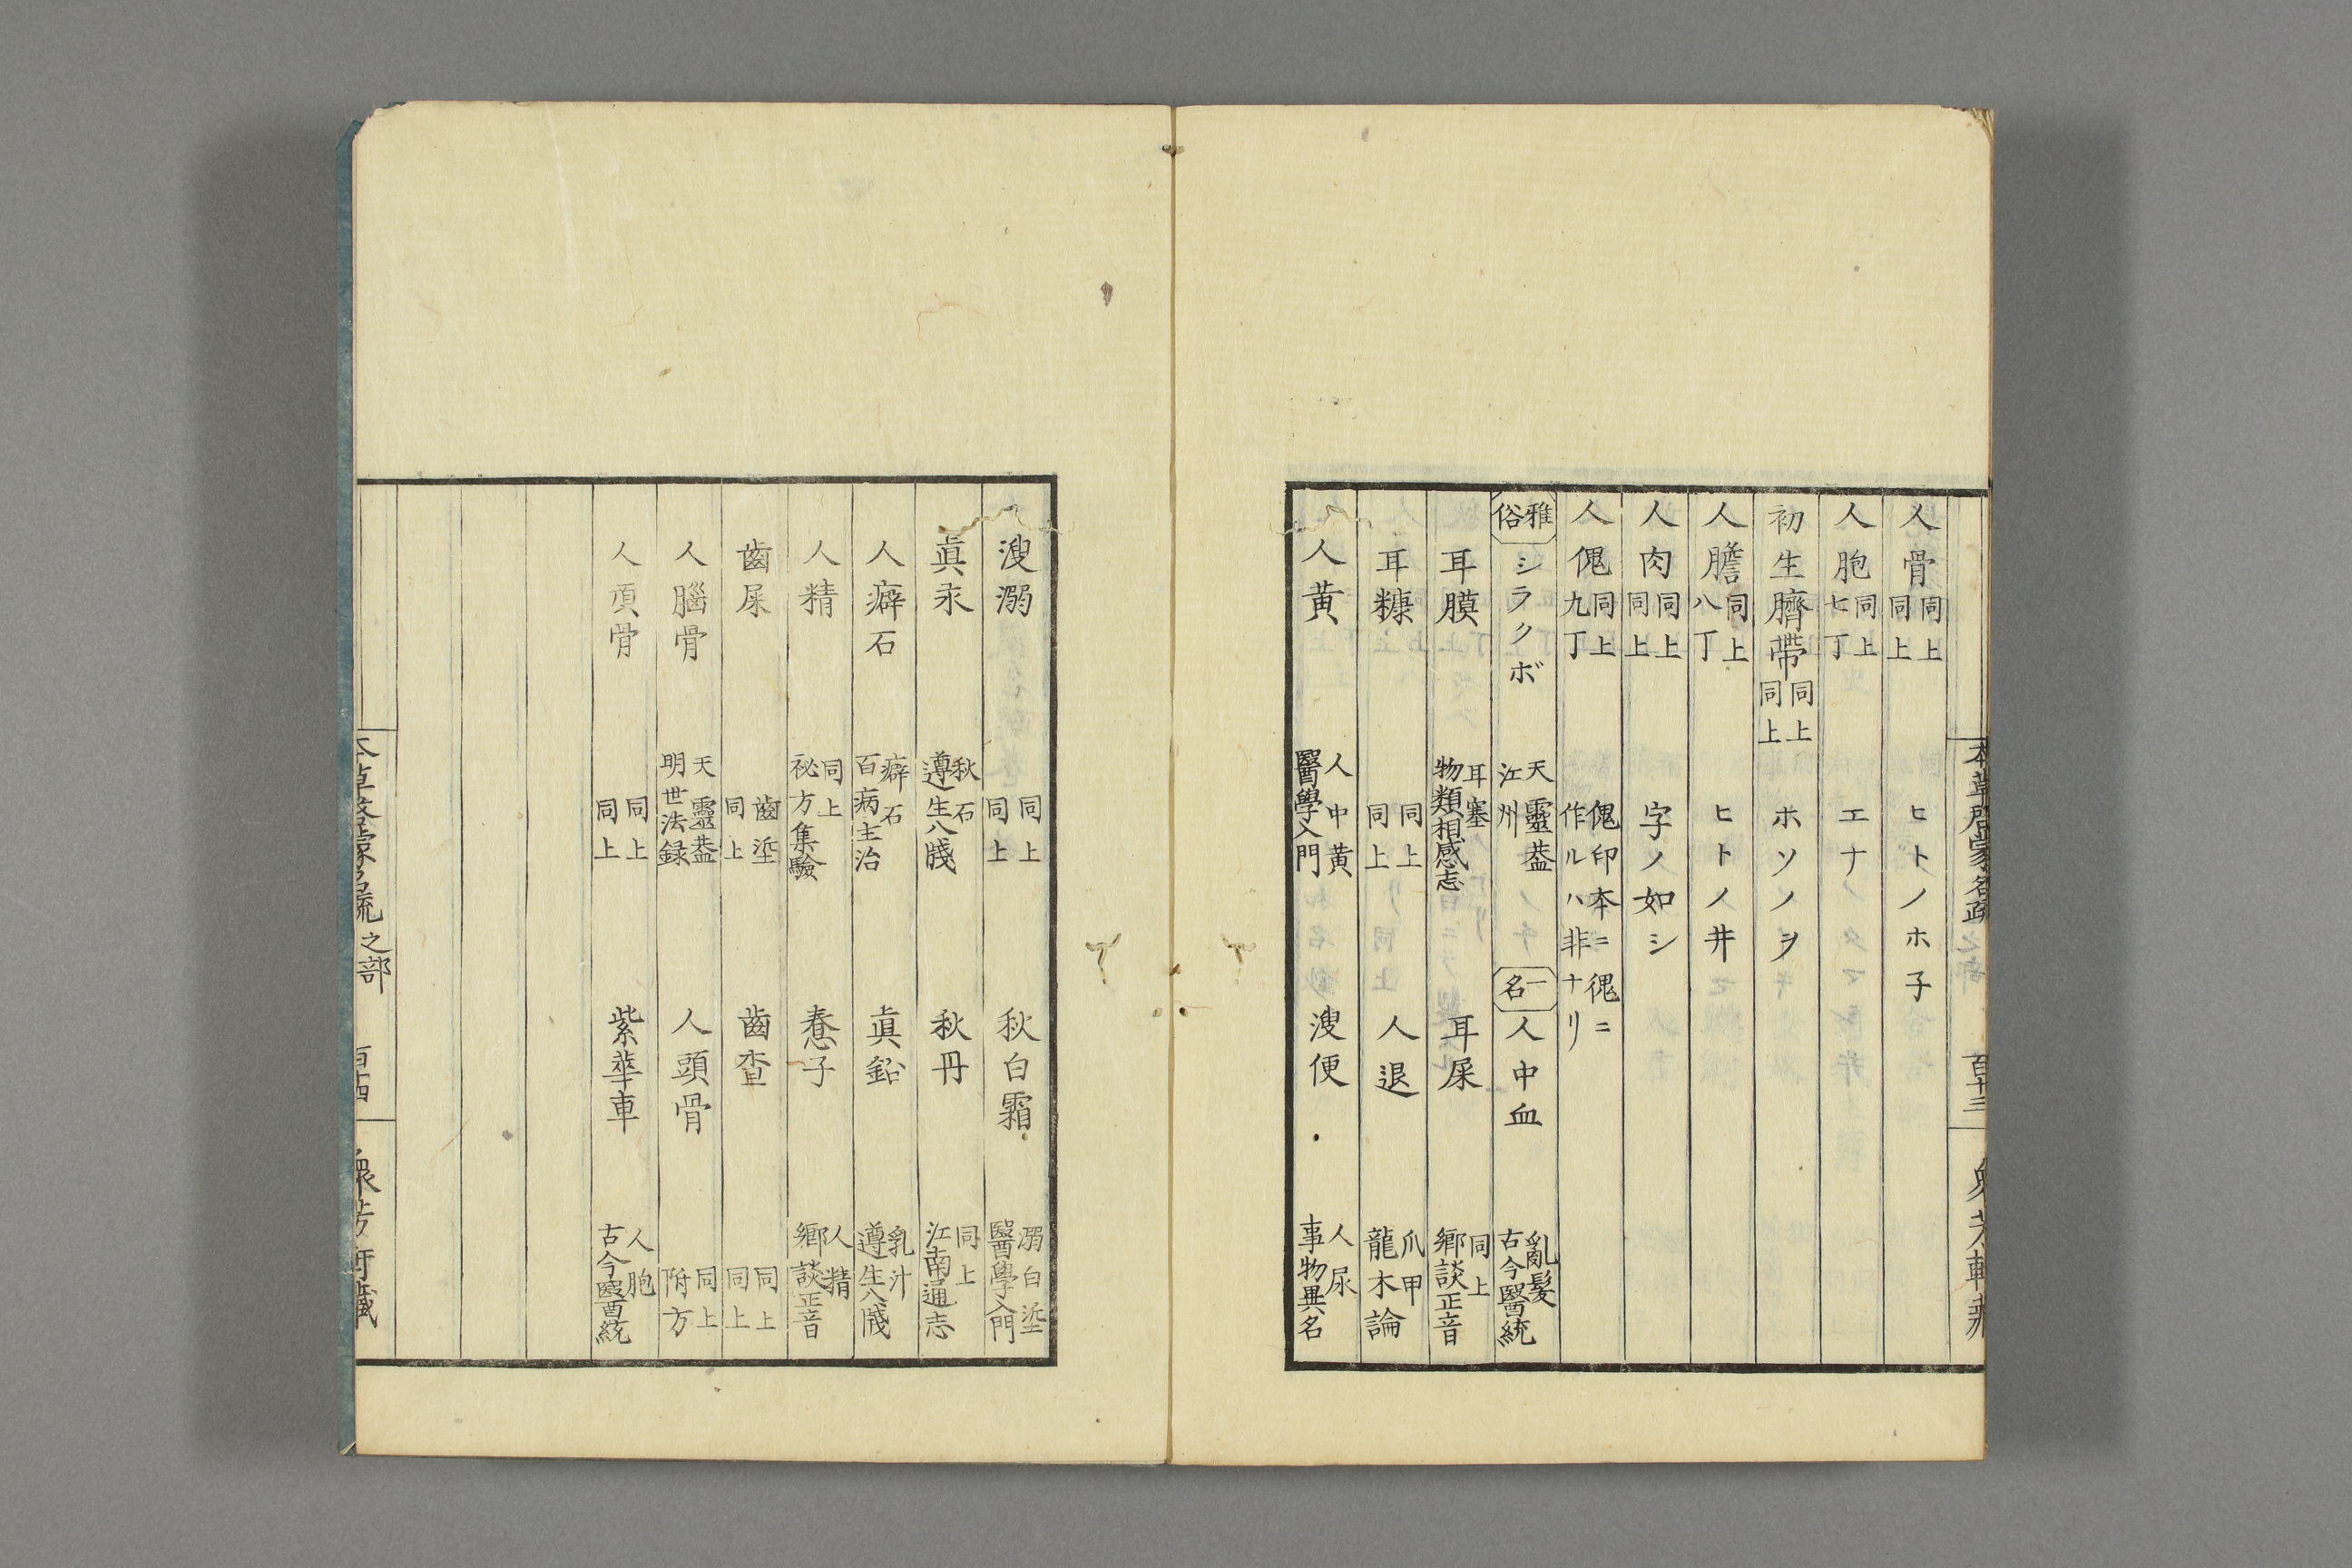 本草啓蒙名疏
百十三
人骨 同上同上 ヒトノホ子
人胞 同上七丁 エナ
初生臍帶 同上同上 ホソノヲ
人膽 同上八丁 ヒトノ井
人肉 同上同上 字ノ如シ
人傀 同上九丁 傀印本ニ傀ニ作ルハ非ナリ
雅俗 シラクボ 天靈葢江州 一名 人中血 亂髮古今醫統
耳膜 耳塞物類相感志 耳屎 同上鄉談正音
耳糠 同上同上 人退 爪甲龍木論
人黃 人中黃醫學入門 溲便 人尿事物異名
溲溺 同上同上 秋白霜 溺白垽醫學入門
眞永 秋石遵生八牋 秋丹 同上江南通志
人癖石 癖石百病主治 眞鉛 乳汁遵生八牋
人精 同上祕方集驗 惷子 人精鄉談正音
齒屎 齒垽同上 齒查 同上同上
人腦骨 天靈葢明世法録 人頭骨 同上附方
人頂骨 同上同上 紫華車 人胞古今醫統
之部